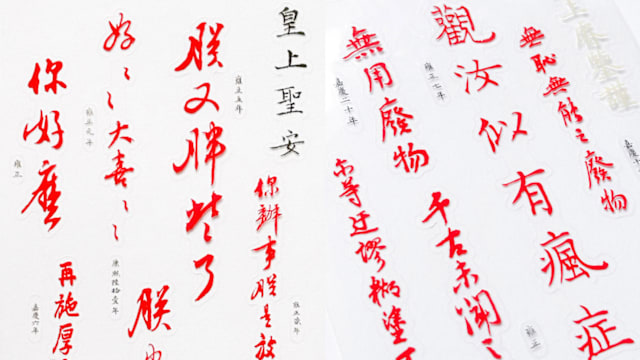 皇上聖安
雍正貳年
你辦事朕是放
雍正五年
朕又胖些了
朕
好ミミ大喜ミミ
康熙陸拾壹年
雍正元年
你好麼
雍正
再施厚
嘉慶六年
嘉慶十
無恥無能之廢物
觀汝似有瘋症
雍正
千古未聞之
無用廢物
嘉慶二十年
尔等迂謬糊塗了